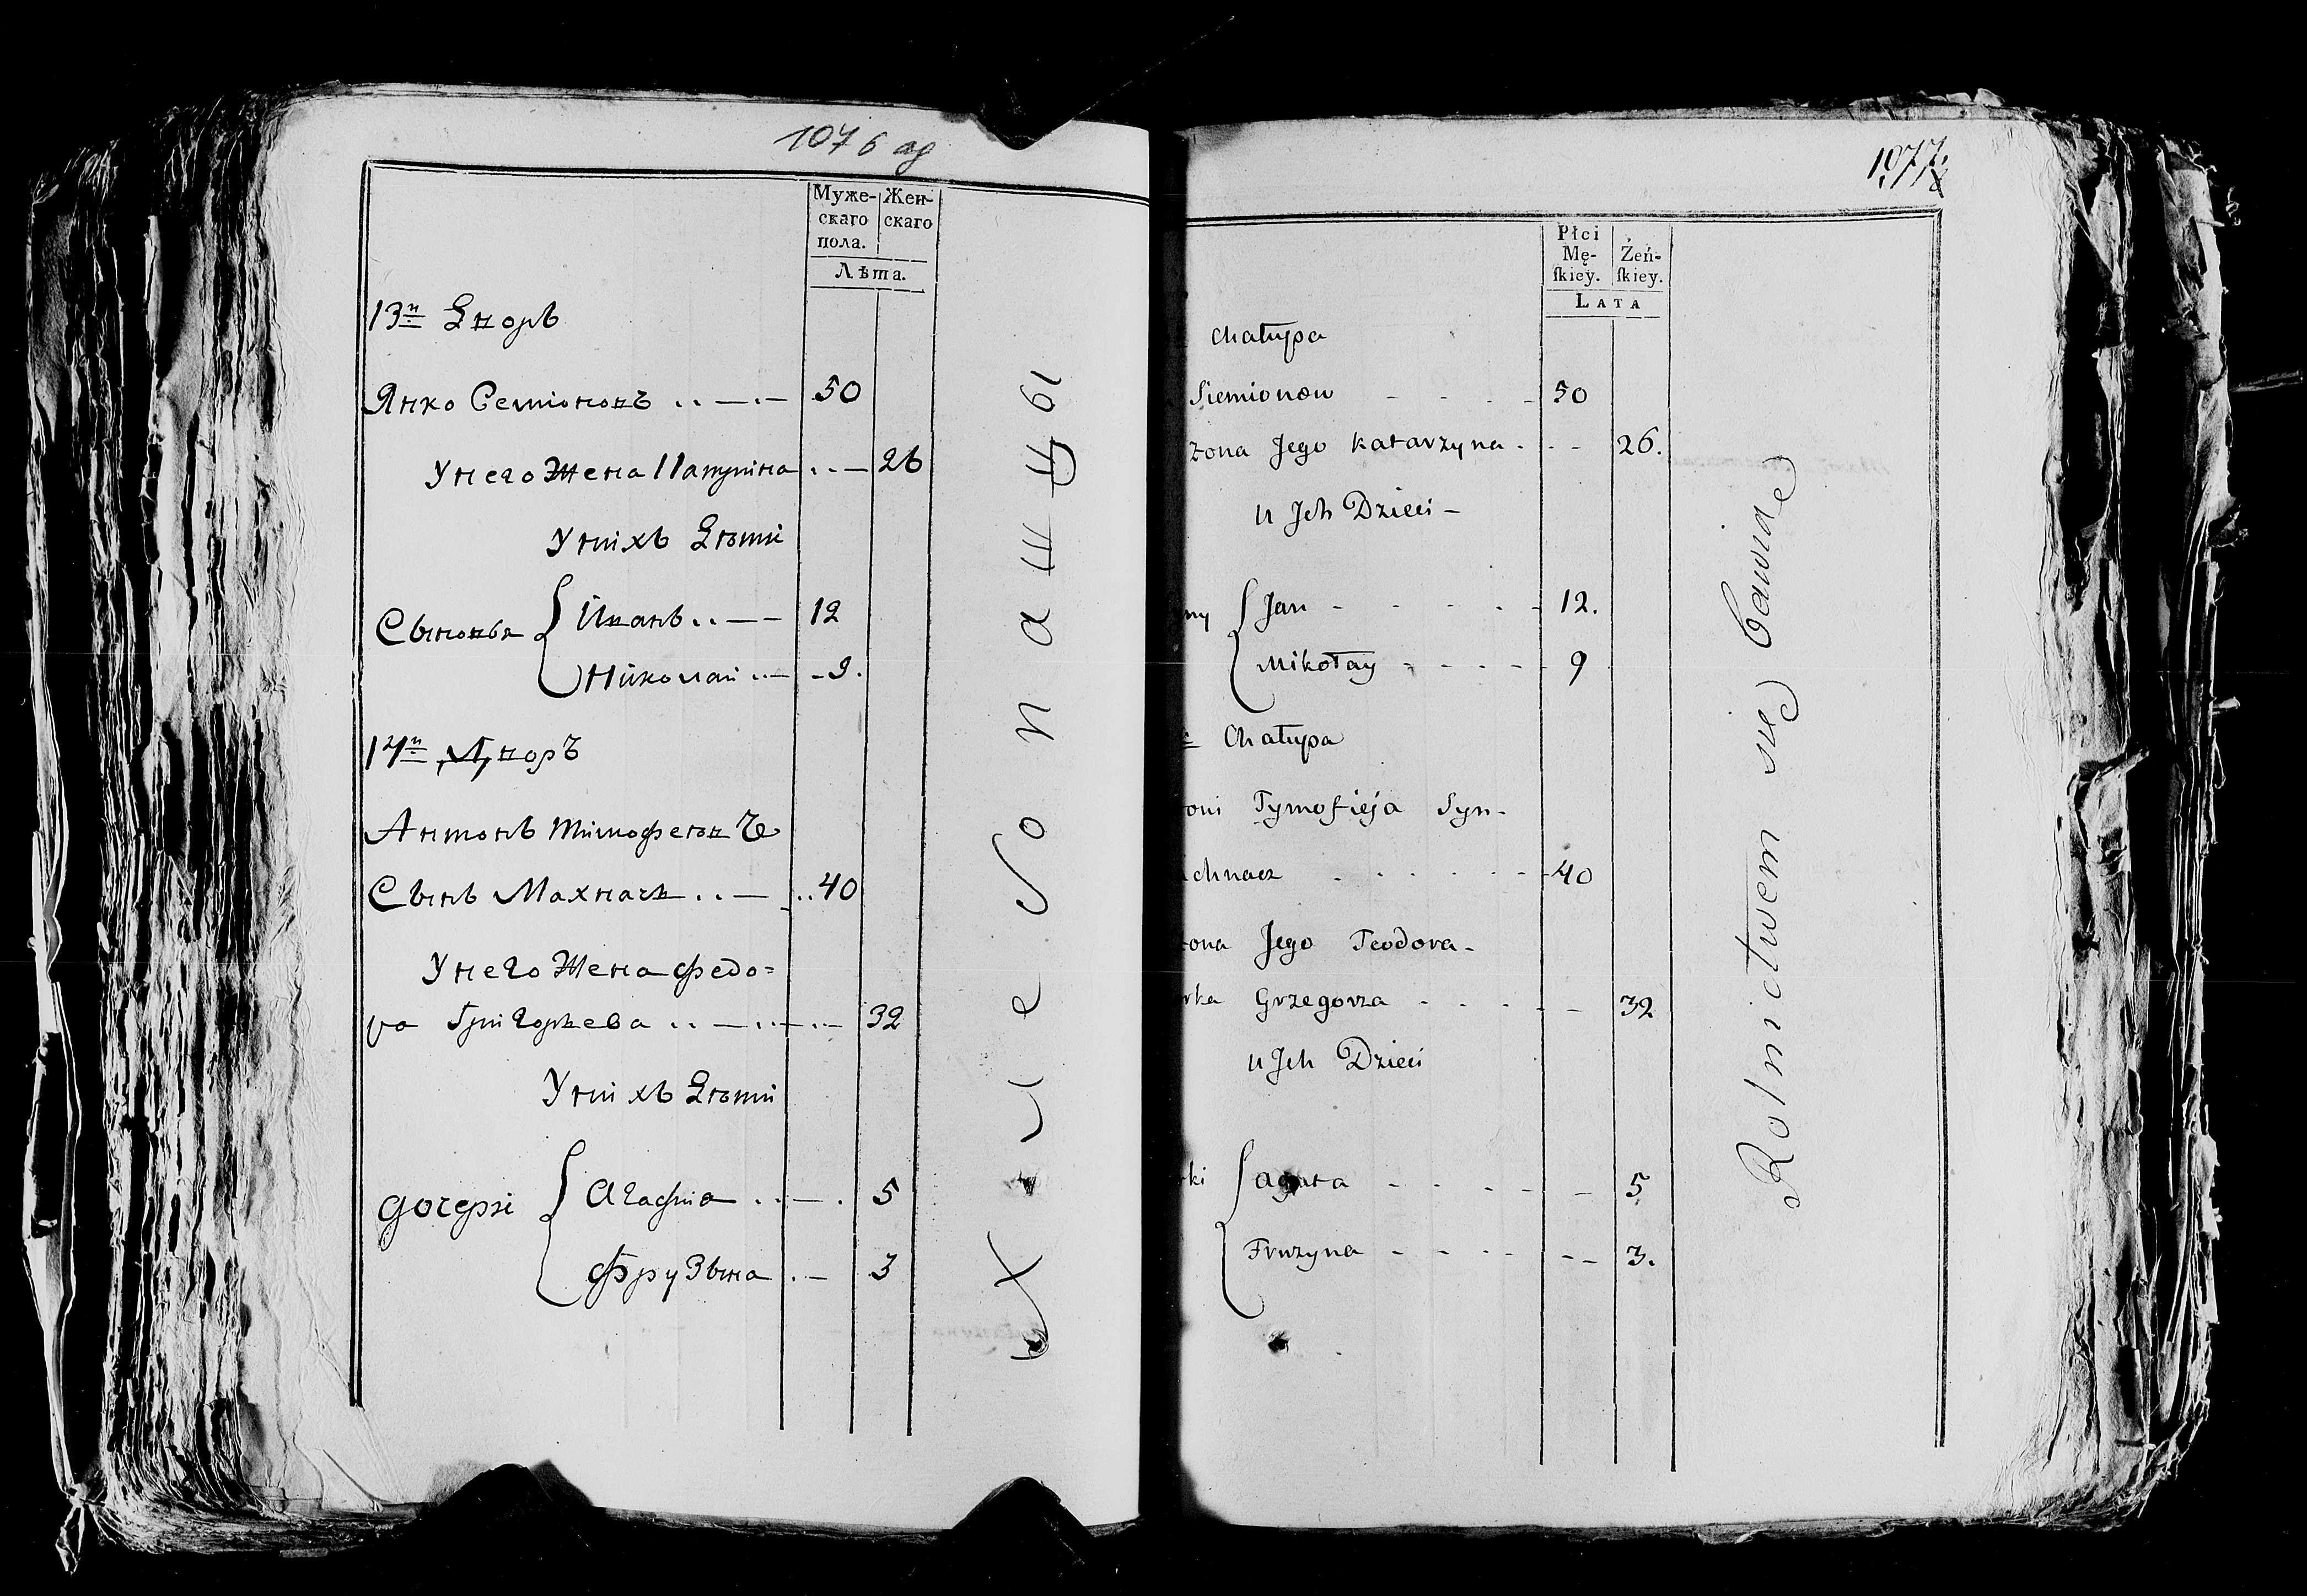 1076 ag
Муже-
скаго
пола.
Жен-
скаго
Лѣта.
13й Дворъ
Янко Семіоновъ
50
У него Жена Катрина
26
У нихъ Дѣти
Сыновья
Иванъ
12
Николай
9.
14й Дворъ
Антонъ Тимофеевъ
Сынъ Махначъ
40
У него Жена Федо=
ра Григорьева
32
У нихъ Дѣти
дочери
Агафия
5
Фрузына
3
Хлебопашцы
1077.
Płci
Mę-
ſkiey.
Żeń-
ſkiey.
LATA
Chałupa
Siemionow
50
żona Jego Katarzyna
26.
u Jch Dzieci
ny
Jan
12.
Mikołay
9
Chałupa
toni Tymofieja Syn
achnacz
40
żona Jego Teodora
rka Grzegorza
32
u Jch Dzieci
rki
Agata
5
Fruzyna
3.
Rolnictwem się bawią